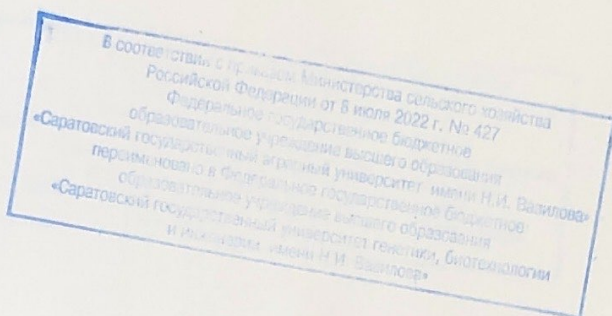 В соответствии с приказом Министерства сельского хозяйства
Российской Федерации от 8 июля 2022 г. № 427
Федеральное государственное бюджетное
образовательное учреждение высшего образования
«Саратовский государственный аграрный университет имени Н.И. Вавилова»
переименовано в Федеральное государственное бюджетное
образовательное учреждение высшего образования
«Саратовский государственный университет генетики, биотехнологии
и инженерии имени Н.И. Вавилова»